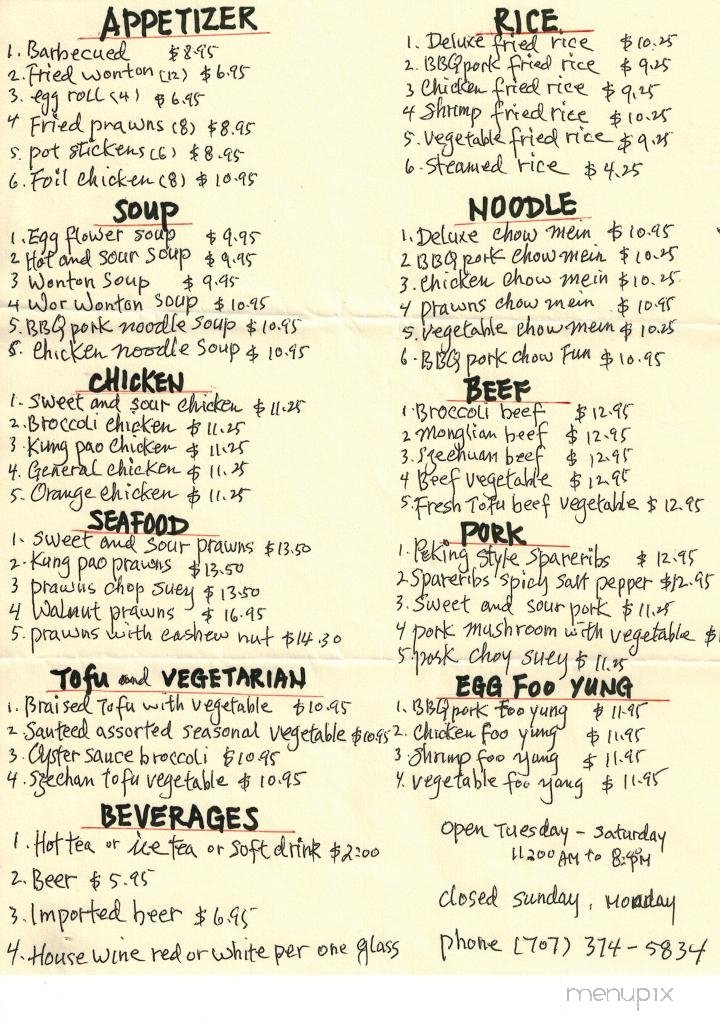 APPETIZER
1. Barbecued $8.95
2. Fried wonton (12) $6.95
3. egg roll (4) $6.95
4 Fried prawns (8) $8.95
5. pot stickers (6) $8.95
6. Foil chicken (8) $10.95
SOUP
1. Egg flower soup $9.95
2 Hot and sour soup $9.95
3 Wonton Soup $9.95
4 Wor Wonton Soup $10.95
5. BBQ pork noodle Soup $10.95
6. chicken noodle Soup $10.95
CHICKEN
1. Sweet and sour chicken $11.25
2. Broccoli chicken $11.25
3. Kung pao chicken $11.25
4. General chicken $11.25
5. Orange chicken $11.25
SEAFOOD
1. Sweet and sour prawns $13.50
2. Kung pao prawns $13.50
3 prawns chop suey $13.50
4 Walnut prawns $16.95
5. prawns with cashew nut $14.30
Tofu and VEGETARIAN
1. Braised Tofu with vegetable $10.95
2 Sauteed assorted seasonal vegetable $10.95
3. Oyster sauce broccoli $10.95
4. Szechan tofu vegetable $10.95
BEVERAGES
1. Hot tea or ice tea or soft drink $2.00
2. Beer $5.95
3. Imported beer $6.95
4. House wine red or white per one glass
RICE
1. Deluxe fried rice $10.25
2. BBQ pork fried rice $9.25
3 Chicken fried rice $9.25
4 Shrimp fried rice $10.25
5. vegetable fried rice $9.25
6. Steamed rice $4.25
NOODLE
1. Deluxe chow mein $10.95
2 BBQ pork chow mein $10.25
3. chicken chow mein $10.25
4 prawns chow mein $10.95
5. vegetable chow mein $10.25
6. BBQ pork chow Fun $10.95
BEEF
1 Broccoli beef $12.95
2 Monglian beef $12.95
3. Szechuan beef $12.95
4 Beef vegetable $12.95
5. Fresh Tofu beef vegetable $12.95
PORK
1. Peking Style Spareribs $12.95
2 Spareribs spicy salt pepper $12.95
3. Sweet and sour pork $11.25
4 pork mushroom with vegetable $
5. pork choy suey $11.25
EGG Foo YUNG
1. BBQ pork foo yung $11.95
2. Chicken foo yung $11.95
3 Shrimp foo yung $11.95
4. vegetable foo yang $11.95
open Tuesday - Saturday
11:00 AM to 8: PM
closed sunday, Monday
phone (707) 374-5834
menupix